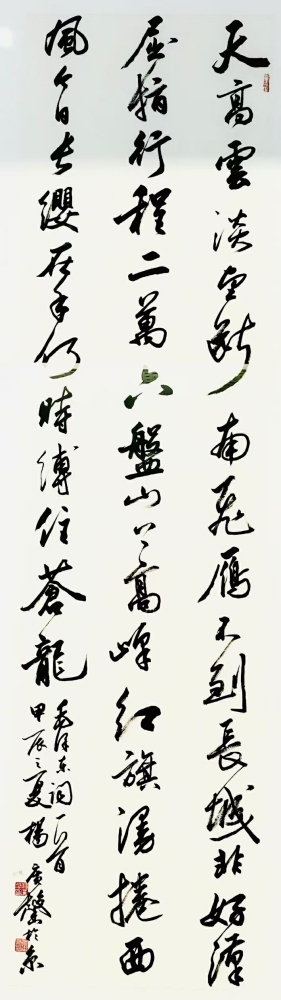 天高雲淡望斷南飛雁不到長城非好漢
屈指行程二萬六盤山上高峰紅旗漫捲西
風今日長纓在手何時縛住蒼龍
毛澤東詞一首
甲辰之夏楊廣馨於京